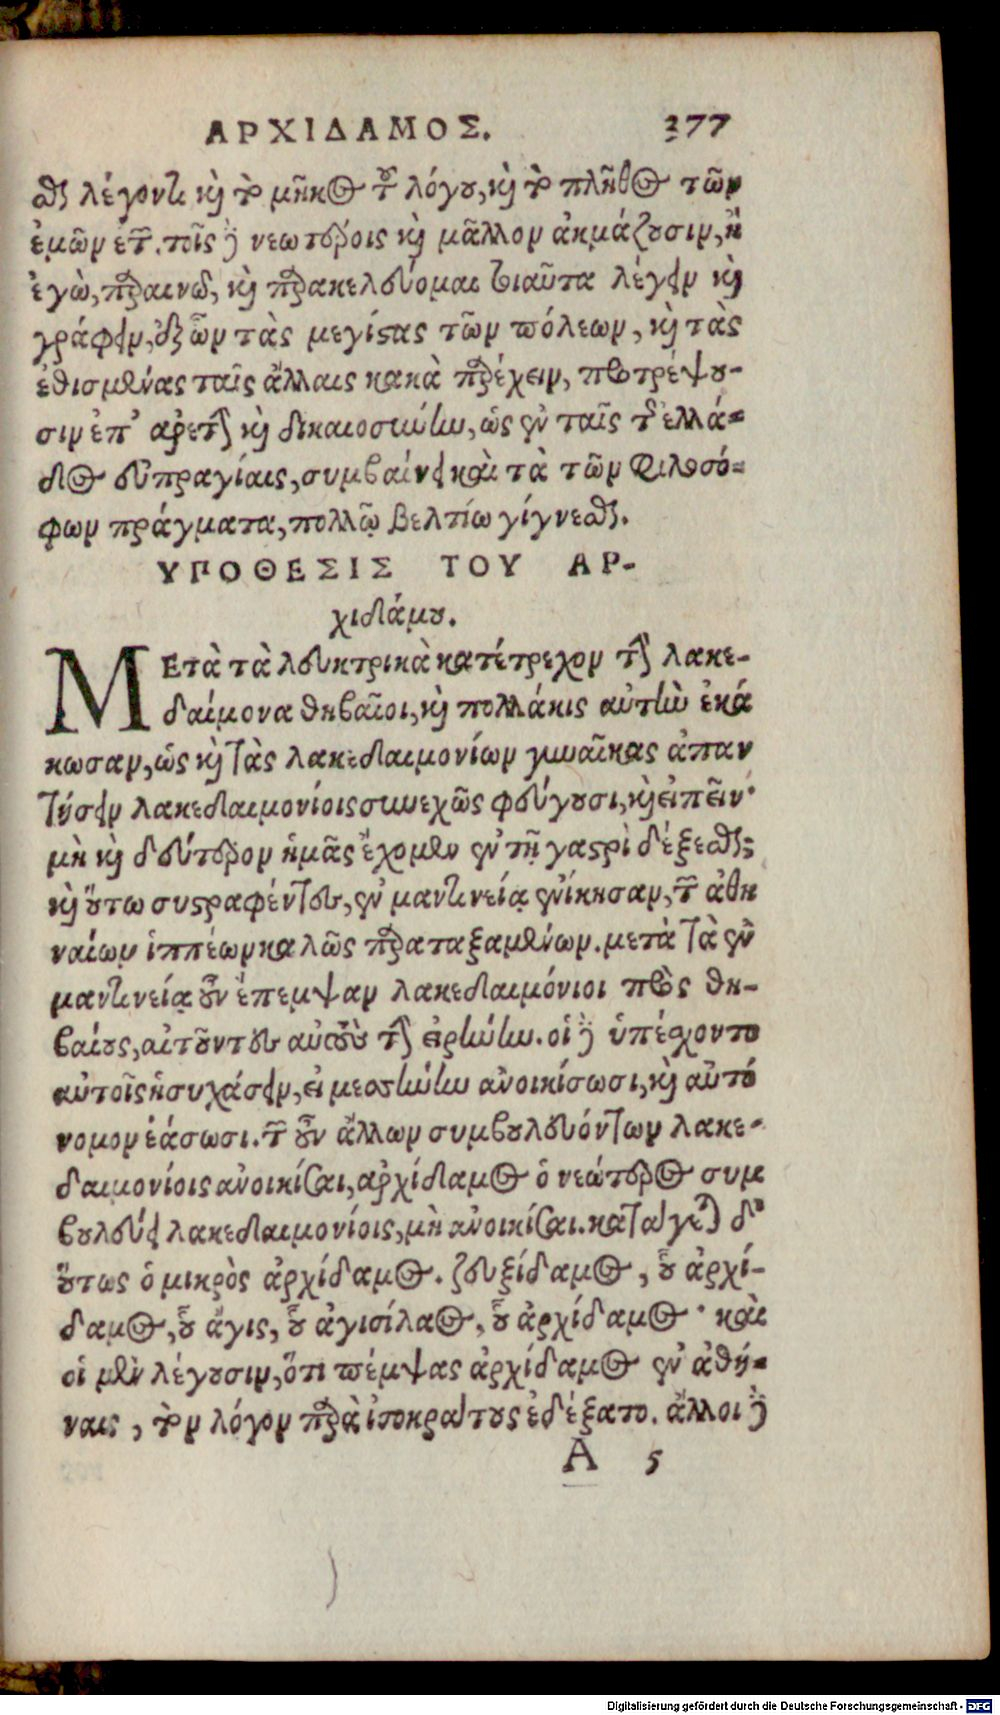 ΑΡΧΙΔΑΜΟΣ. 377
σθαι λέγοντι καὶ τὸ μῆκος τοῦ λόγου, καὶ τὸ πλῆθος τῶν
ἐμῶν ἐτῶν. τοῖς δὲ νεωτέροις καὶ μᾶλλον ἀκμάζουσιν, ἢ
ἐγὼ, παραινῶ, καὶ παρακελεύομαι τοιαῦτα λέγειν καὶ
γράφειν, ἐξ ὧν τὰς μεγίστας τῶν πόλεων, καὶ τὰς
εἰθισμένας ταῖς ἄλλαις κακὰ παρέχειν, προτρέψου-
σιν ἐπ' ἀρετὴν καὶ δικαιοσύνην, ὡς ἐν ταῖς τῆς ἑλλά-
δος εὐπραγίαις, συμβαίνει καὶ τὰ τῶν φιλοσό-
φων πράγματα, πολλῷ βελτίω γίγνεσθαι.
ΥΠΟΘΕΣΙΣ ΤΟΥ ΑΡ-
χιδάμου.
ΜΕτὰ τὰ λευκτρικὰ κατέτρεχον τὴν λακε-
δαίμονα θηβαῖοι, καὶ πολλάκις αὐτὴν ἐκά
κωσαν, ὡς καὶ τὰς λακεδαιμονίων γυναῖκας ἀπαν
τήσειν λακεδαιμονίοις συνεχῶς φεύγουσι, καὶ εἰπεῖν·
μὴ καὶ δεύτερον ἡμᾶς ἔχομεν ἐν τῇ γαστρὶ δέξεσθαι;
καὶ οὕτω συστραφέντες, ἐν μαντινείᾳ ἐνίκησαν, τῶν ἀθη
ναίων ἱππέων καλῶς παραταξαμένων. μετὰ τὰ ἐν
μαντινείᾳ οὖν ἔπεμψαν λακεδαιμόνιοι πρὸς θη-
βαίους, αἰτοῦντες αὐτοὺς τὴν εἰρήνην. οἱ δὲ ὑπέσχοντο
αὐτοῖς ἡσυχάσειν, εἰ μεσσήνην ἀνοικίσωσι, καὶ αὐτό
νομον ἐάσωσι. τῶν οὖν ἄλλων συμβουλευόντων λακε-
δαιμονίοις ἀνοικίσαι, ἀρχίδαμος ὁ νεώτερος συμ
βουλεύει λακεδαιμονίοις, μὴ ἀνοικίσαι. κατάγεται δ'
οὕτως ὁ μικρὸς ἀρχίδαμος. ζευξίδαμος, οὗ ἀρχί-
δαμος, οὗ ἄγις, οὗ ἀγισίλαος, οὗ ἀρχίδαμος· καὶ
οἱ μὲν λέγουσιν, ὅτι πέμψας ἀρχίδαμος ἐν ἀθή-
ναις, τὸν λόγον παρὰ ἰσοκράτους ἐδέξατο. ἄλλοι δὲ
A 5
Digitalisierung gefördert durch die Deutsche Forschungsgemeinschaft - DFG